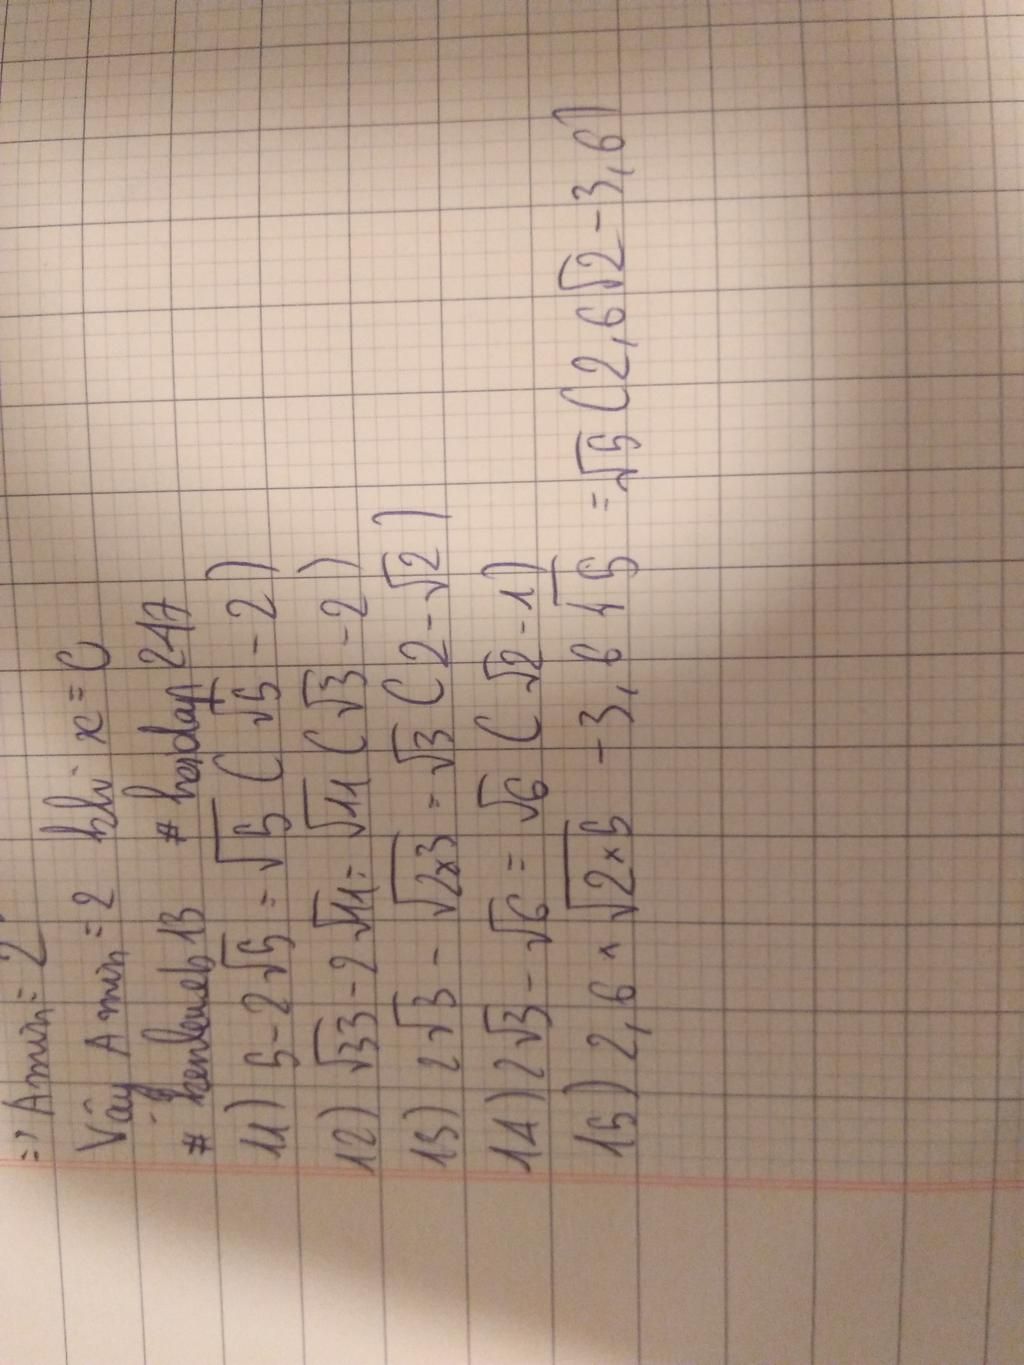 => Amin = 2
Vây Amin = 2 khi x = 0
# kenkeneb13 # hoidap247
11) 5 - 2√5 = √5 ( √5 - 2 )
12) √33 - 2√11 = √11 ( √3 - 2 )
13) 2√3 - √2x3 = √3 ( 2 - √2 )
14) 2√3 - √6 = √6 ( √2 - 1 )
15) 2,6 × √2×5 - 3,6 √5 = √5 ( 2,6√2 - 3,6 )